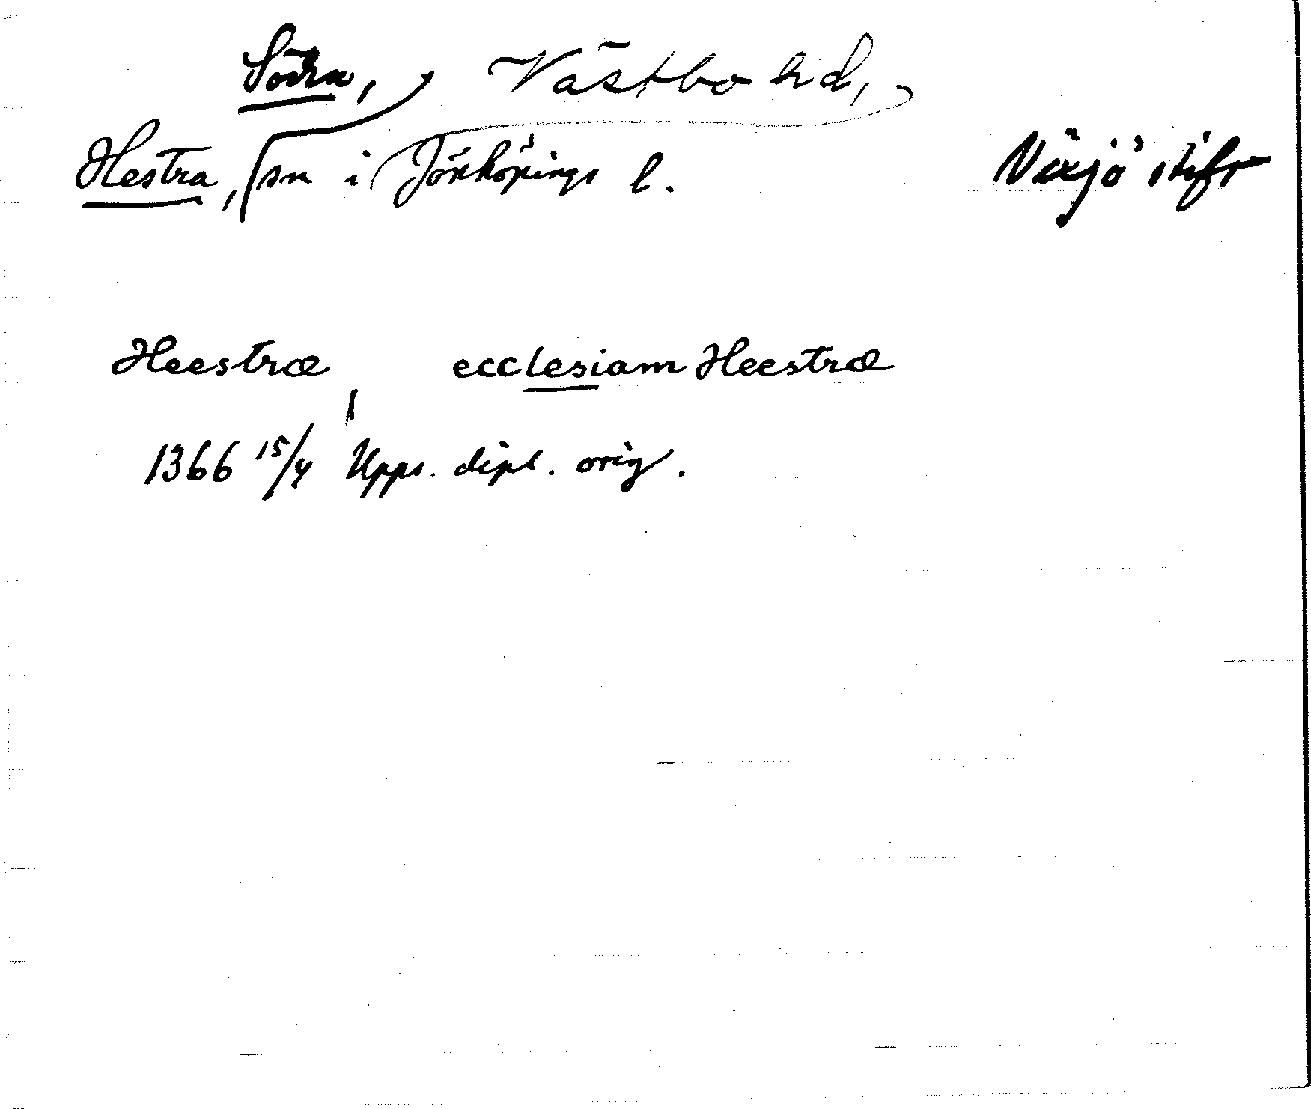 Södra, Västbo hd,
Hestra, sn i Jönköpings l. Växjö stift
Heestræ ecclesiam Heestræ
1366 15/4 Upps. dipl. orig.